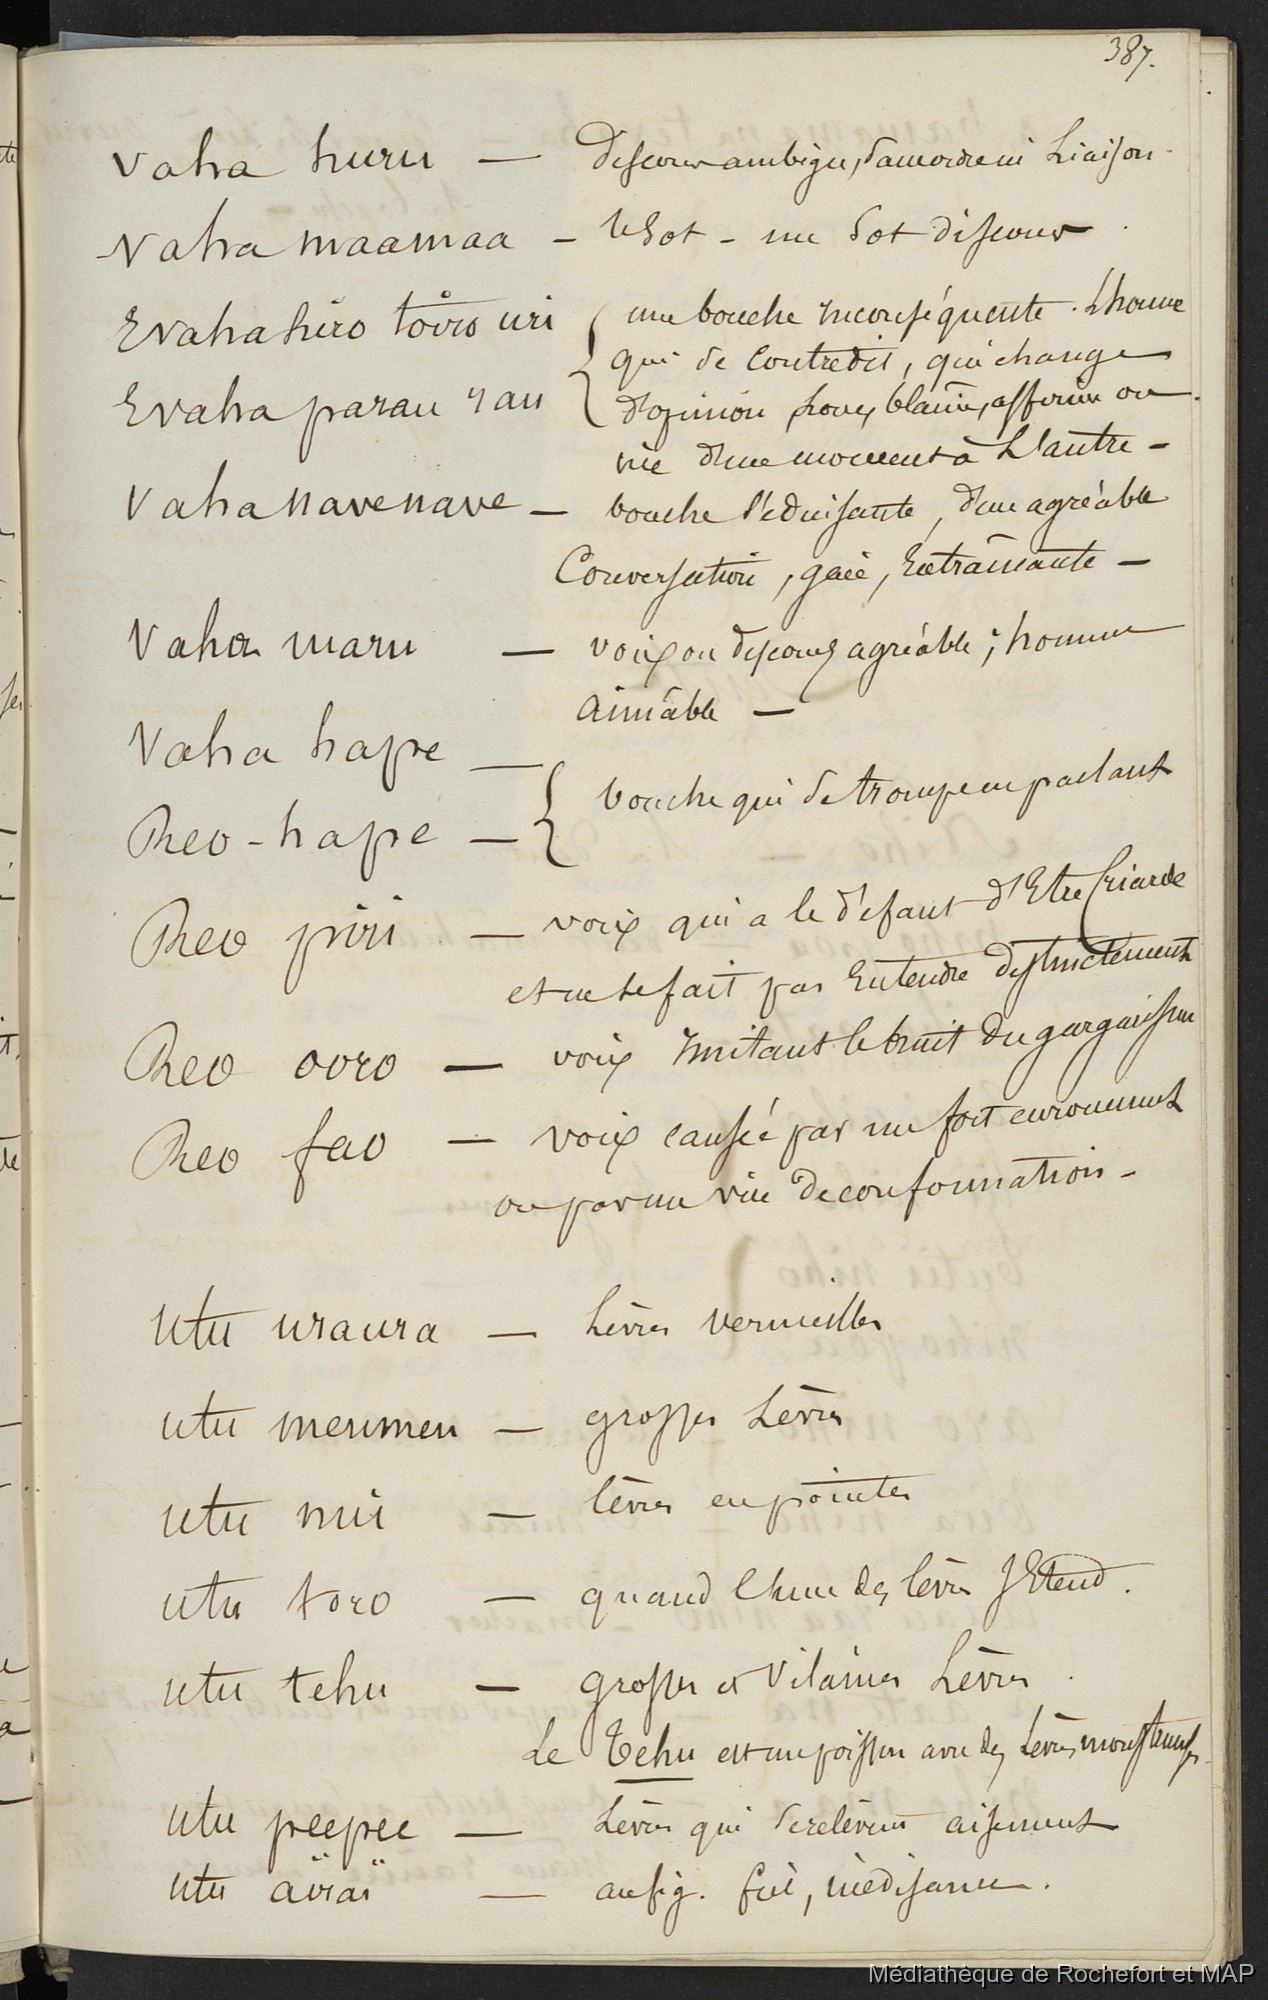 387.
Vaha huru — discour ambigu, sans ordre ni Liaison.
Vaha maamaa - le Sot - un Sot discour.
Evaha hiro tovio uri { une bouche inconséquente. L'homme
qui se Contredit, qui change
Evaha parau rau d'opinion, loue, blâme, affirme ou
nie d'un moment à L'autre -
Vaha navenave - bouche séduisante, d'une agréable
Conversation, gaie, Entraînante -
Vaha maru — voix ou discours agréable; homme
aimable —
Vaha hape —
{ bouche qui se trompe en parlant
Reo-hape —
Reo piri — voix qui a le défaut d'Etre Criarde
et ne se fait pas Entendre distinctement
Reo ooro — voix imitant le bruit du gargarisme
Reo fao — voix causée par un fort enrouement
ou par un vice de conformation -
Utu uraura — Lèvres vermeilles
Utu meumeu — grosses Lèvres
Utu mii — lèvres en pointes
Utu toro — quand l'une des lèvres s'Etend.
Utu tehu — grosses et Vilaines Lèvres.
Le Tehu est un poisson avec des Lèvres monstrueuses.
Utu peepee — Lèvres qui se relèvent aisement
Utu aïraï — au fig. fiel, médisance.
Médiathèque de Rochefort et MAP